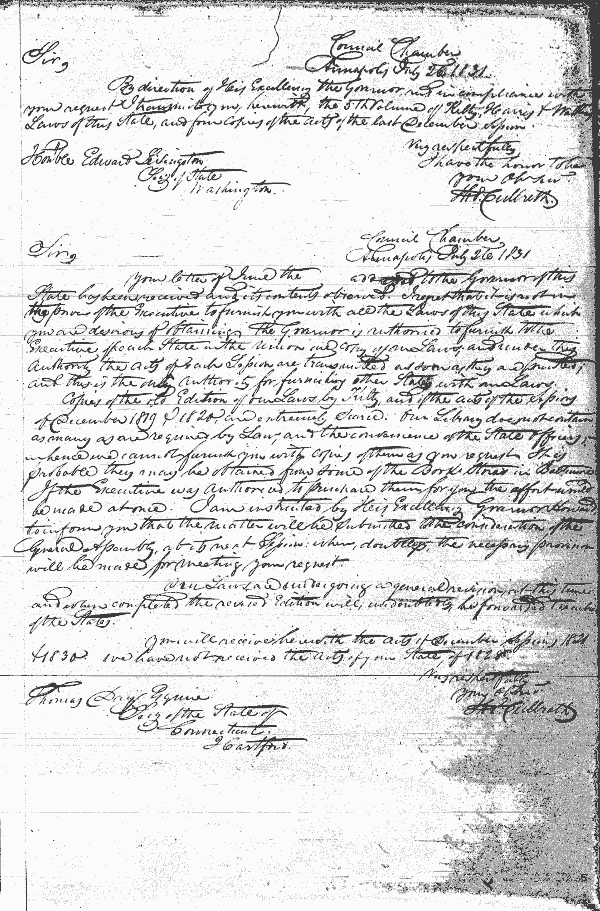 Council Chamber
Annapolis July 26 1831
Sir,
By direction of His Excellency the Governor and in compliance with
your request I transmit to you, herewith, the 5th Volume of Kilty, Harris &
Laws of this State, and four Copies of the Acts of the last December Session.
Very respectfully
I have the honor to be
your Ob. Ser
Honble Edward Livingston
Secy of State
Washington.
Thos. Culbreth.
Council Chamber,
Annapolis July 26 1831
Sir,
Your letter of June the addressed to the Governor of this
State has been received and its contents observed. I regret that it is not in
the power of the Executive to furnish you with all the Laws of this State which
you are desirous of obtaining. The Governor is authorised to furnish to the
Executive of each State in the Union one Copy of our Laws, and under this
Authority the Acts of each Session are transmitted as soon as they are printed,
and this is the only Authority for furnishing other States with our Laws.
Copies of the old Edition of our Laws by Kilty, and of the acts of the Sessions
of December 1819 & 1820, are extremely scarce. Our Library does not contain
as many as are required by Law, and the convenience of the State officers,
whence we cannot furnish you with copies of them as you request. It is
probable they may be obtained from some of the Book Stores in Baltimore
If the Executive was Authorised to purchase them for you the effort would
be made at once. I am instructed by His Excellency Governor Howard
to inform you that the matter will be submitted to the consideration of the
General Assembly, at its next Session: when, doubtless, the necessary provision
will be made for meeting your request.
Our Laws are undergoing a general revision, at this time
and when completed the revised Edition will, undoubtedly, be forwarded to each
of the States.
You will receive herewith the Acts of December Sessions
& 1830. We have not received the Acts of your State of
Very respectfully
your Ob. Ser
Thomas Day Esquire
Thos Culbreth
Secy of the State of
Connecticut.
Hartford.